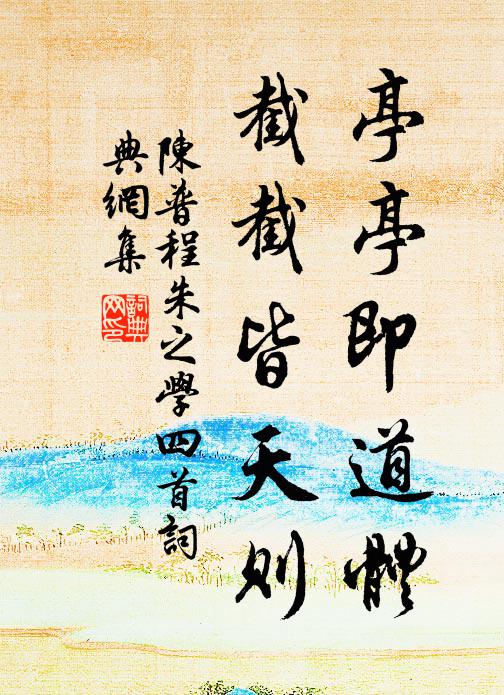 亭亭即道體
截截皆天則
陳普程朱之學四首詞
典網集
詞典網印